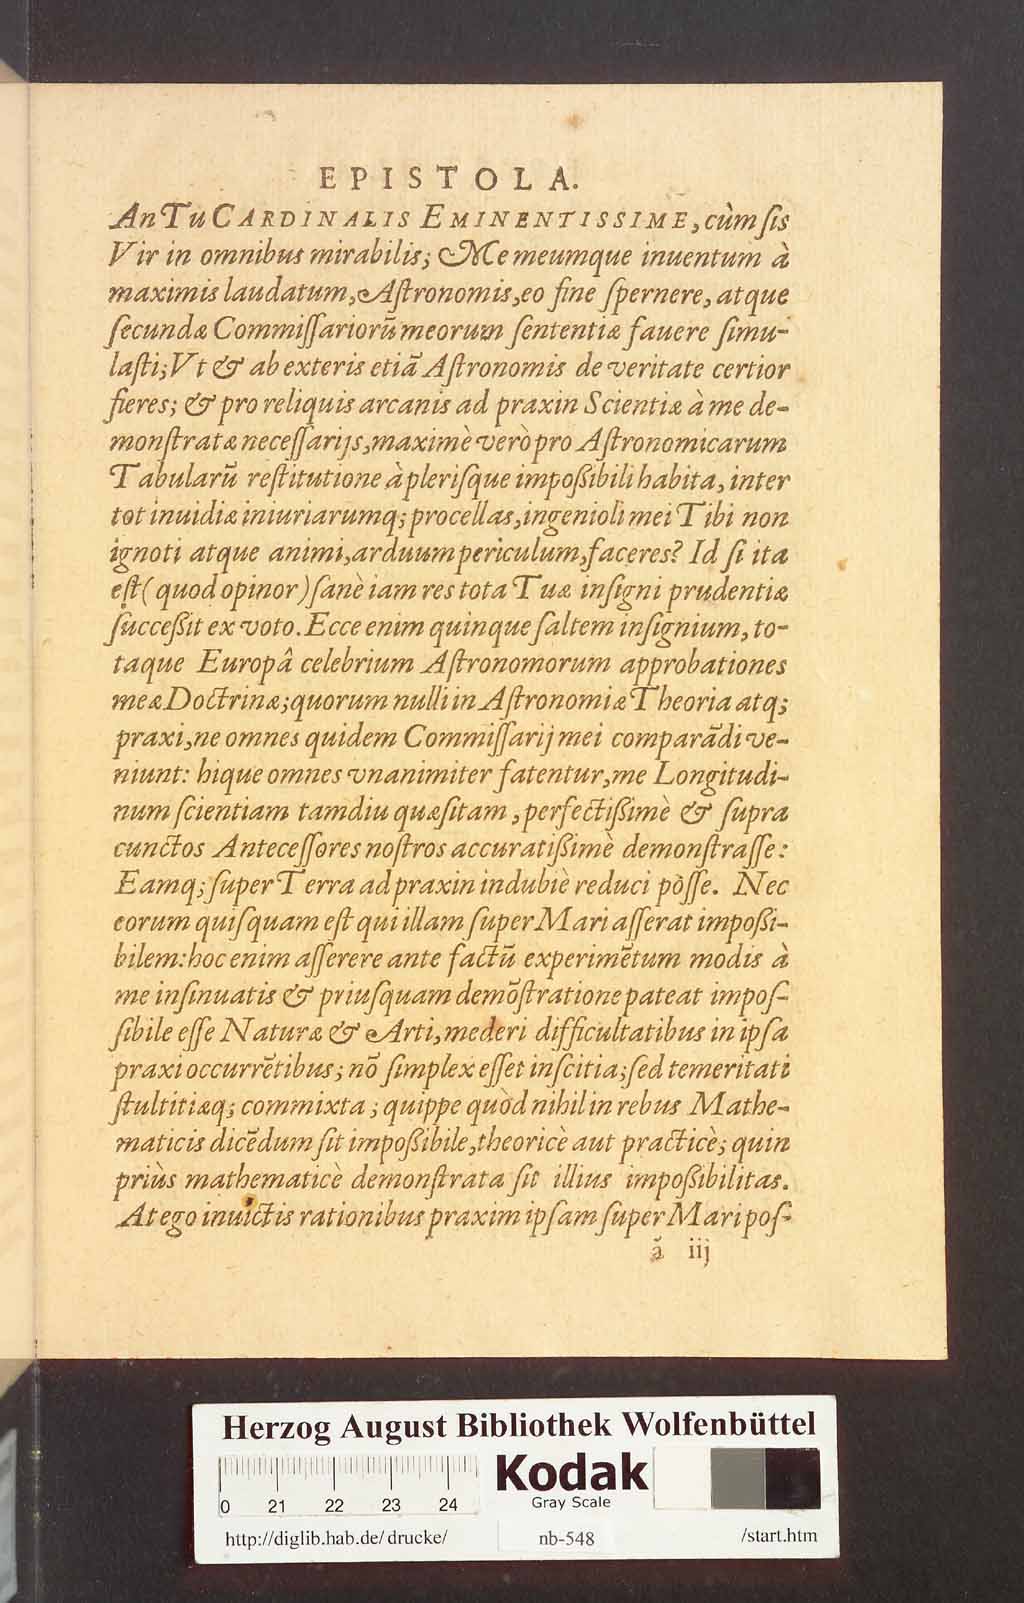 EPISTOLA.
An Tu CARDINALIS EMINENTISSIME, cùm ſis
Vir in omnibus mirabilis; Me meumque inuentum à
maximis laudatum, Aſtronomis, eo fine ſpernere, atque
ſecundæ Commiſſariorũ meorum ſententiæ fauere ſimu-
laſti; Vt & ab exteris etiã Aſtronomis de veritate certior
fieres; & pro reliquis arcanis ad praxin Scientiæ à me de-
monſtratæ neceſſarijs, maximè verò pro Aſtronomicarum
Tabularũ reſtitutione à pleriſque impoßibili habita, inter
tot inuidiæ iniuriarumq; procellas, ingenioli mei Tibi non
ignoti atque animi, arduum periculum, faceres? Id ſi ita
eſt (quod opinor) ſanè iam res tota Tuæ inſigni prudentiæ
ſucceßit ex voto. Ecce enim quinque ſaltem inſignium, to-
taque Europâ celebrium Aſtronomorum approbationes
meæ Doctrinæ; quorum nulli in Aſtronomiæ Theoria atq;
praxi, ne omnes quidem Commiſſarij mei comparãdi ve-
niunt: hique omnes vnanimiter fatentur, me Longitudi-
num ſcientiam tamdiu quæſitam, perfectißimè & ſupra
cunctos Anteceſſores noſtros accuratißimè demonſtraſſe:
Eamq; ſuper Terra ad praxin indubiè reduci pòſſe. Nec
eorum quiſquam eſt qui illam ſuper Mari aſſerat impoßi-
bilem: hoc enim aſſerere ante factũ experimẽtum modis à
me inſinuatis & priuſquam demõſtratione pateat impoſ-
ſibile eſſe Naturæ & Arti, mederi difficultatibus in ipſa
praxi occurrẽtibus; nõ ſimplex eſſet inſcitia; ſed temeritati
ſtultitiæq; commixta; quippe quòd nihil in rebus Mathe-
maticis dicẽdum ſit impoßibile, theoricè aut practicè; quin
priùs mathematicè demonſtrata ſit illius impoßibilitas.
At ego inuictis rationibus praxim ipſam ſuper Mari poſ-
ã iij
Herzog August Bibliothek Wolfenbüttel
0 21 22 23 24
Kodak
Gray Scale
http://diglib.hab.de/drucke/ nb-548 /start.htm